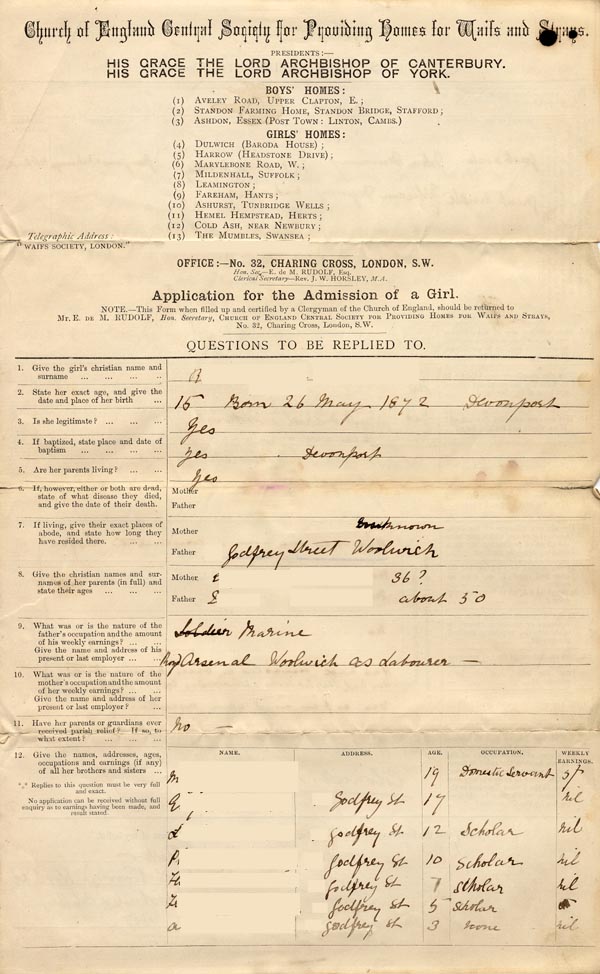 Church of England Central Society for Providing Homes for Waifs and Strays.
PRESIDENTS:—
HIS GRACE THE LORD ARCHBISHOP OF CANTERBURY.
HIS GRACE THE LORD ARCHBISHOP OF YORK.
BOYS' HOMES:
(1) AVELEY ROAD, UPPER CLAPTON, E.;
(2) STANDON FARMING HOME, STANDON BRIDGE, STAFFORD;
(3) ASHDON, ESSEX (POST TOWN: LINTON, CAMBS.)
GIRLS' HOMES:
(4) DULWICH (BARODA HOUSE);
(5) HARROW (HEADSTONE DRIVE);
(6) MARYLEBONE ROAD, W.;
(7) MILDENHALL, SUFFOLK;
(8) LEAMINGTON;
(9) FAREHAM, HANTS;
(10) ASHURST, TUNBRIDGE WELLS;
(11) HEMEL HEMPSTEAD, HERTS;
(12) COLD ASH, NEAR NEWBURY;
(13) THE MUMBLES, SWANSEA;
Telegraphic Address:
"WAIFS SOCIETY, LONDON."
OFFICE:—No. 32, CHARING CROSS, LONDON, S.W.
Hon. Sec.—E. de M. RUDOLF, Esq.
Clerical Secretary—Rev. J. W. HORSLEY, M.A.
Application for the Admission of a Girl.
NOTE.—This Form when filled up and certified by a Clergyman of the Church of England, should be returned to
Mr. E. DE M. RUDOLF, Hon. Secretary, CHURCH OF ENGLAND CENTRAL SOCIETY FOR PROVIDING HOMES FOR WAIFS AND STRAYS,
No. 32, Charing Cross, London, S.W.
QUESTIONS TO BE REPLIED TO.
1. Give the girl's christian name and
surname ... ... ... ...
2. State her exact age, and give the
date and place of her birth ...
15 Born 26 May 1872 Devonport
3. Is she legitimate? ... ... ...
Yes
4. If baptized, state place and date of
baptism ... ... ... ...
Yes Devonport
5. Are her parents living? ... ...
Yes
6. If, however, either or both are dead,
state of what disease they died,
and give the date of their death.
Mother
Father
7. If living, give their exact places of
abode, and state how long they
have resided there. ... ...
Mother Unknown
Father Godfrey Street Woolwich
8. Give the christian names and sur-
names of her parents (in full) and
state their ages ... ...
Mother 36?
Father about 50
9. What was or is the nature of the
father's occupation and the amount
of his weekly earnings? ... ...
Give the name and address of his
present or last employer ... ...
Soldier Marine
Roy Arsenal Woolwich as Labourer —
10. What was or is the nature of the
mother's occupation and the amount
of her weekly earnings? ... ...
Give the name and address of her
present or last employer? ...
11. Have her parents or guardians ever
received parish relief? If so, to
what extent? ... ... ...
No —
12. Give the names, addresses, ages,
occupations and earnings (if any)
of all her brothers and sisters ...
*** Replies to this question must be very full
and exact.
No application can be received without full
enquiry as to earnings having been made, and
result stated.
NAME. ADDRESS. AGE. OCCUPATION. WEEKLY EARNINGS.
M 19 Domestic Servant 5/-
E Godfrey St 17 nil
Godfrey St 12 Scholar nil
Godfrey St 10 Scholar nil
Godfrey St 7 Scholar nil
Godfrey St 5 Scholar
a Godfrey St 3 none nil